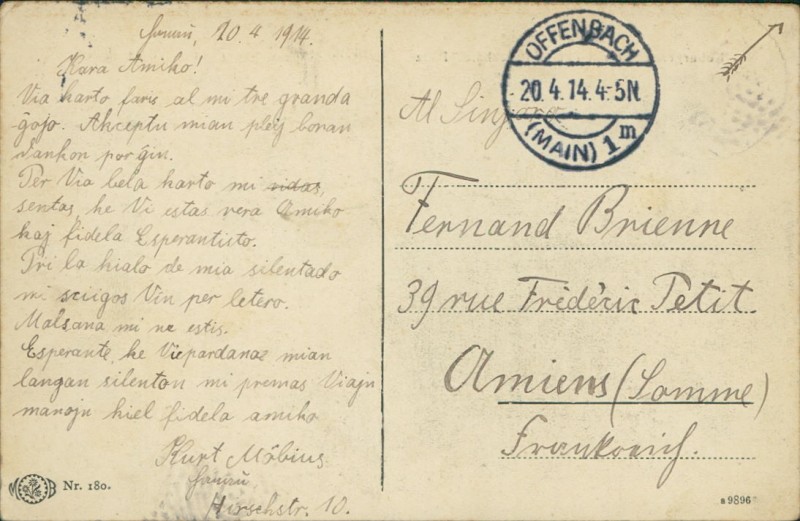 20.4.1914.
Kara Amiko!
Via karto faris al mi tre granda
ĝojo. Akceptu mian pleij bonan
dankon por ĝin.
Per Via bela karto mi vidas,
sentas, ke Vi estas vera Amiko
kaj fidela Esperantisto.
Pri la kialo de mia silentado
mi sciigos Vin per letero.
Malsana mi ne estis.
Esperante, ke Vi pardonas mian
langan silenton mi premas Viajn
manojn kiel fidela amiko
Kurt Möbius
Hirschstr. 10.
Nr. 180.
OFFENBACH
20.4.14.4-5N.
(MAIN) 1m
Al Sinjoro
Fernand Brienne
39 rue Frédéric Petit.
Amiens (Somme)
Frankreich.
a 9896